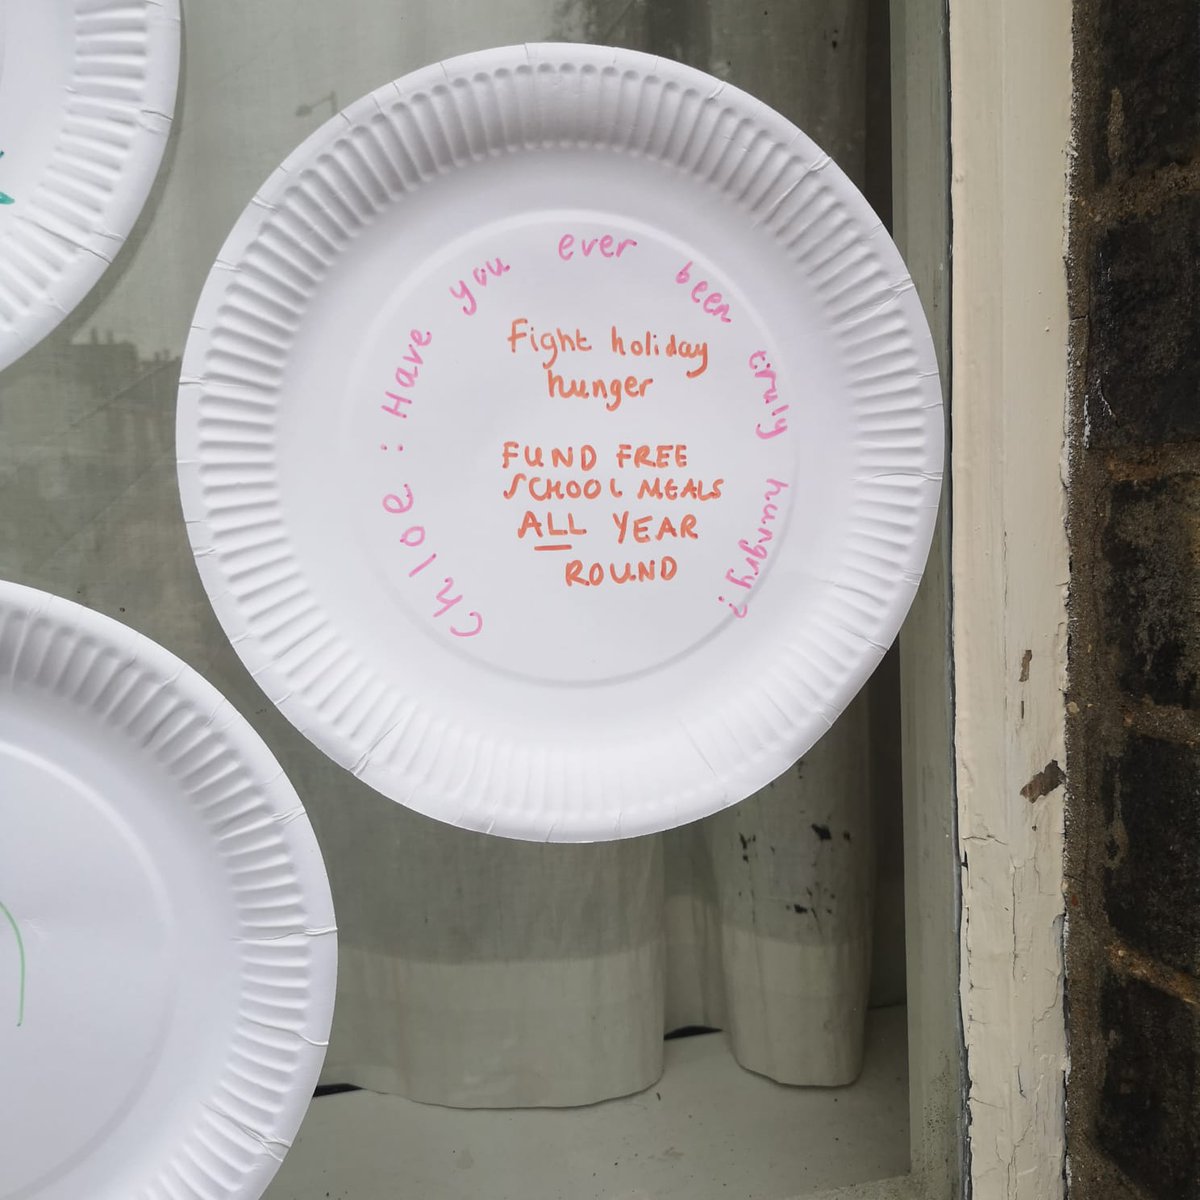 Chloe: Have you ever been truly hungry?
Fight holiday
hunger
FUND FREE
SCHOOL MEALS
ALL YEAR
ROUND